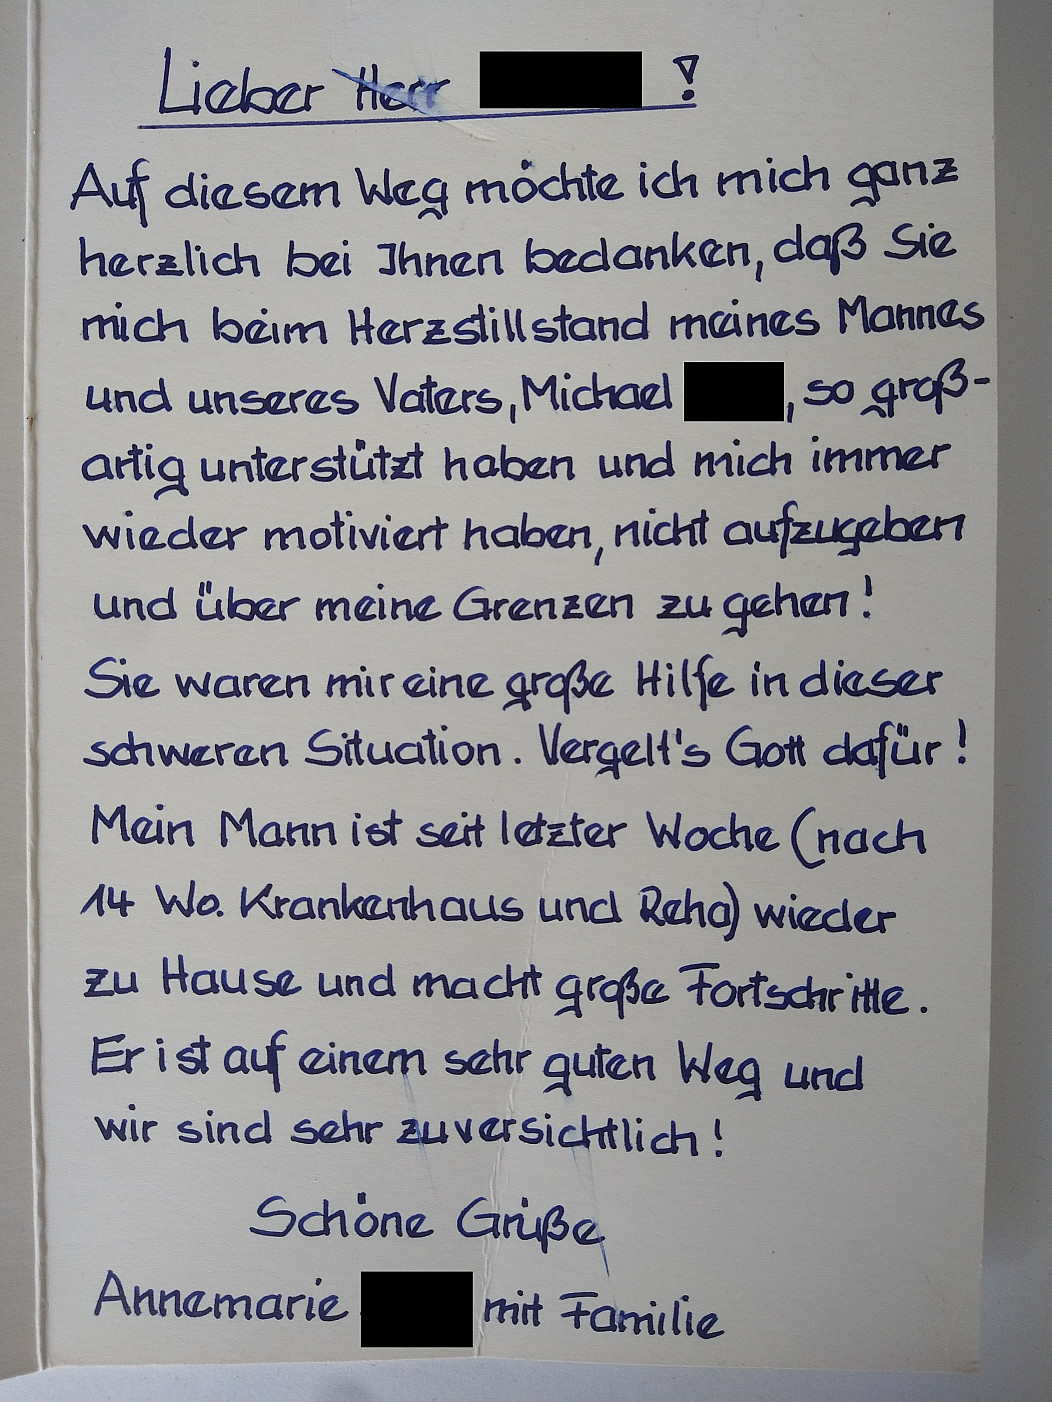 Lieber Herr !
Auf diesem Weg möchte ich mich ganz
herzlich bei Ihnen bedanken, daß Sie
mich beim Herzstillstand meines Mannes
und unseres Vaters, Michael , so groß-
artig unterstützt haben und mich immer
wieder motiviert haben, nicht aufzugeben
und über meine Grenzen zu gehen!
Sie waren mir eine große Hilfe in dieser
schweren Situation. Vergelt's Gott dafür!
Mein Mann ist seit letzter Woche (nach
14 Wo. Krankenhaus und Reha) wieder
zu Hause und macht große Fortschritte.
Er ist auf einem sehr guten Weg und
wir sind sehr zuversichtlich!
Schöne Grüße
Annemarie mit Familie